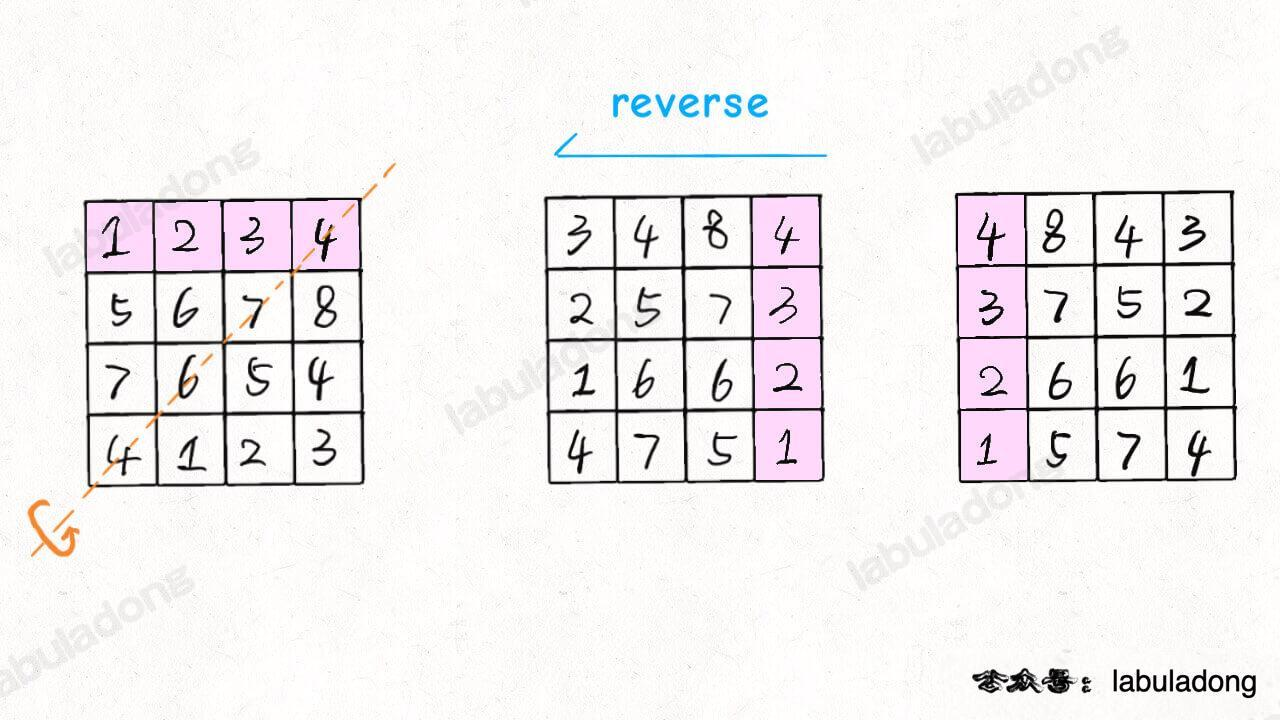 reverse
1 2 3 4
5 6 7 8
7 6 5 4
4 1 2 3
3 4 8 4
2 5 7 3
1 6 6 2
4 7 5 1
4 8 4 3
3 7 5 2
2 6 6 1
1 5 7 4
labuladong
labuladong
labuladong
labuladong
labuladong
公众号：labuladong